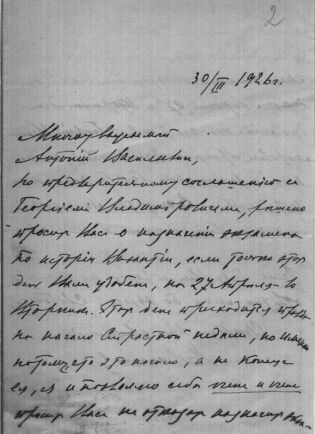 2
30/III 1926 г.
Многоуважаемый
Антоній Васильевич,
по предварительному соглашенію с
Георгіем Владимировичем, решено
просить Вас о назначеніи экзамена
по исторіи Византіи, если только этот
день Вам удобен, на 27 Апреля - во
Вторник. Этот день приходится
на начало Страстной недели, но
потому что это начало, а не конец
ея, я и позволяю себе
просить Вас не отказать назначить